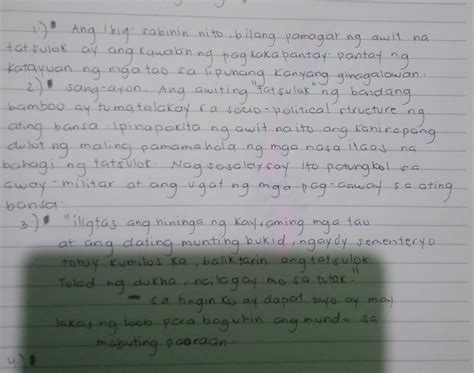 1.) Ang ibig sabihin nito, bilang pamagat ng awit na
tatsulok ay ang kawalan ng pagkakapantay-pantay ng
katayuan ng mga tao sa lipunang kanyang ginagalawan.
2.) sang-ayon. Ang awiting "tatsulok" ng bandang
bamboo ay tumatalakay sa socio-political structure ng
ating bansa. Ipinapakita ng awit na ito ang kahirapang
dulot ng maling pamamahala ng mga nasa itaas na
bahagi ng tatsulok. Nagsasalaysay ito patungkol sa
away-militar at ang ugat ng mga pag-aaway sa ating
bansa.
3.) "iligtas ang hininga ng kay raming mga tao
at ang dating munting bukid, ngayo'y sementeryo
totoy kumilos ka, baliktarin ang tatsulok
Tulad ng dukha, nailagay mo sa tuktok."
- sa tingin ko ay dapat tayo ay may
lakas ng loob para baguhin ang mundo sa
mabuting paaraan.
4.)